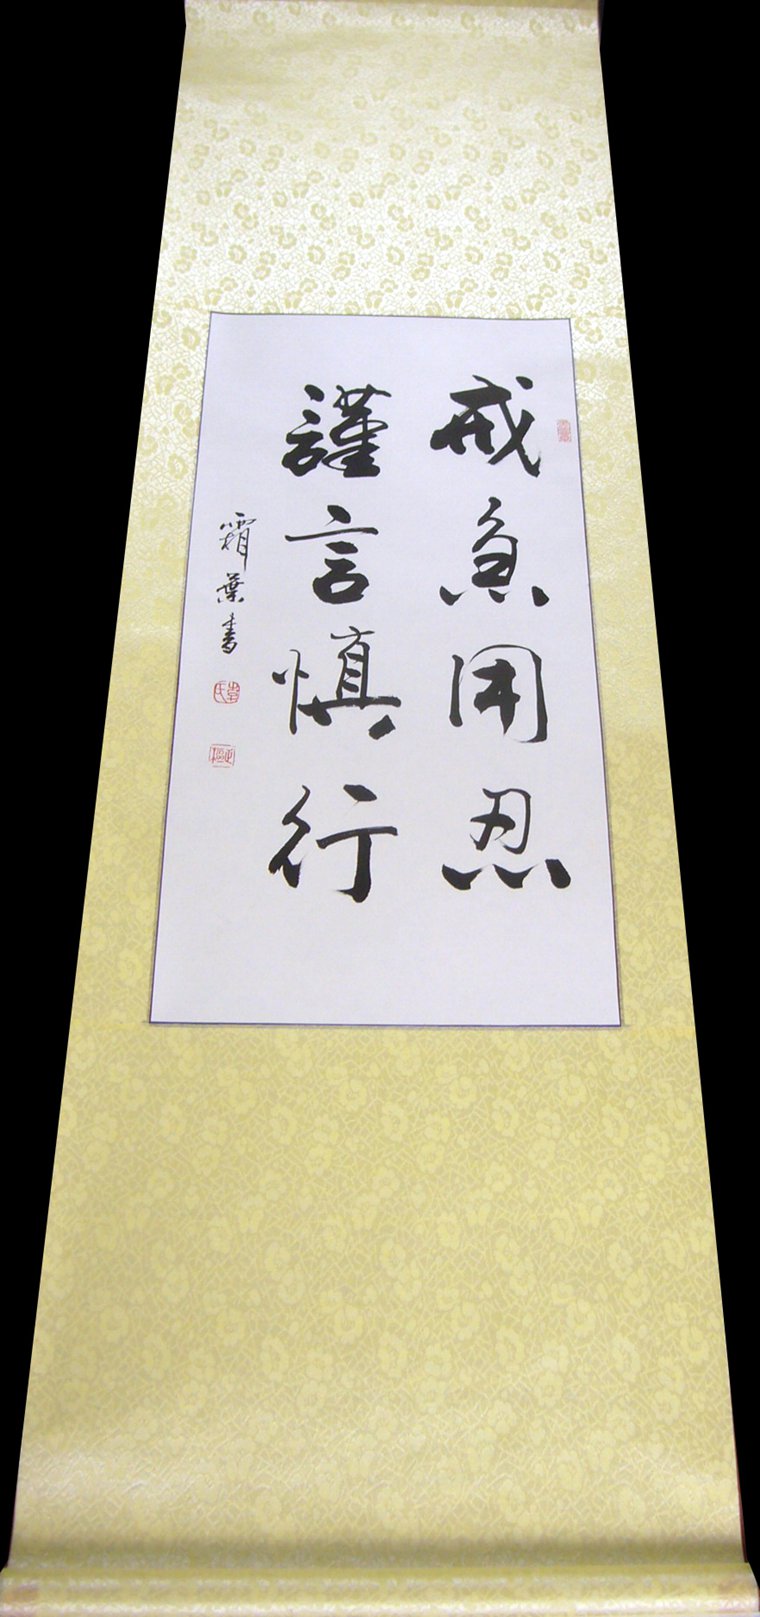 戒急用忍
謹言慎行
霜葉書